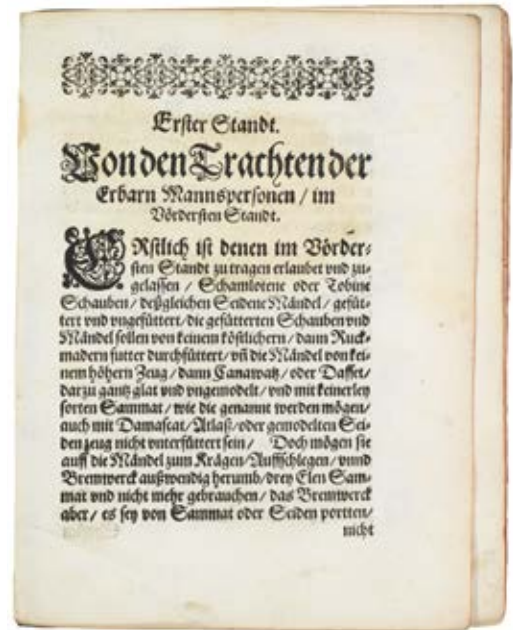 Erster Standt.
Von den Trachten der
Erbarn Mannspersonen / im
Vördersten Standt.
ERstlich ist denen im Vörder-
sten Standt zu tragen erlaubet vnd zu-
gelassen / Schamlotene oder Tobine
Schauben / deßgleichen Seidene Mändel / gefüt-
tert vnd vngefüttert / die gefütterten Schauben vnd
Mändel sollen von keinem köstlichern / dann Ruck-
madern futter durchfüttert / vñ die Mändel von kei-
nem höhern Zeug / dann Canawatz / oder Daffet /
darzu gantz glat vnd vngemodelt / vnd mit keinerley
sorten Sammat / wie die genannt werden mögen /
auch mit Damascat / Atlaß / oder gemodelten Sei-
den zeug nicht vnterfüttert sein / Doch mögen sie
auff die Mändel zum Krägen / Auffschlegen / vnnd
Bremwerck außwendig herumb / drey Elen Sam-
mat vnd nicht mehr gebrauchen / das Bremwerck
aber / es sey von Sammat oder Seiden portten /
nicht